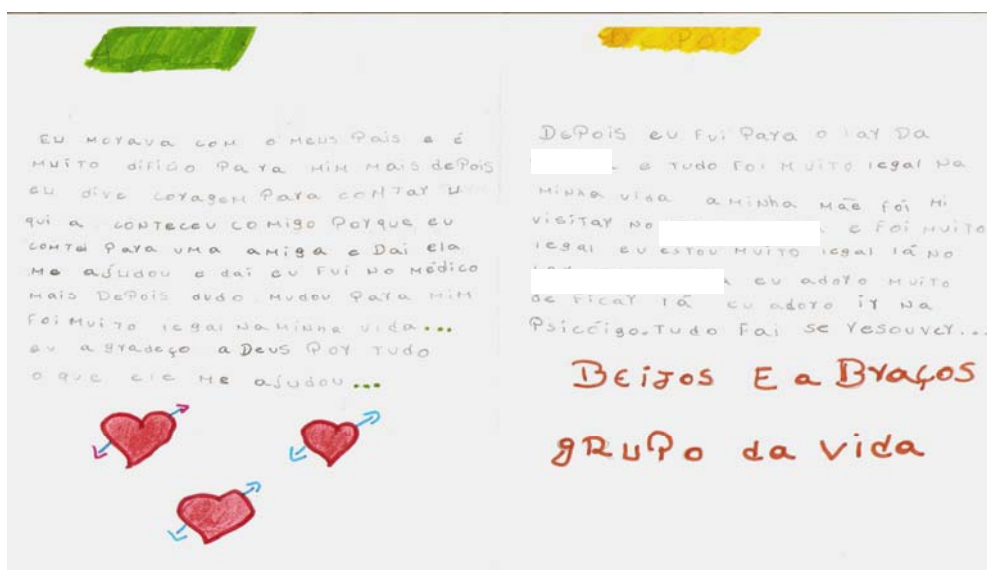 EU MORAVA COM O MEUS PAIS E É
MUITO DIFÍCIO PARA MIM MAIS DEPOIS
EU DIVE CORAGEM PARA CONTAR U
QUI A CONTECEU COMIGO PORQUE EU
CONTEI PARA UMA AMIGA E DAI ELA
ME AJUDOU E DAI EU FUI NO MÉDICO
MAIS DEPOIS DUDO MUDOU PARA MIM
FOI MUITO LEGAL NA MINHA VIDA...
EU AGRADEÇO A DEUS POR TUDO
O QUE ELE ME AJUDOU...
DEPOIS
DEPOIS EU FUI PARA O LAR DA
E TUDO FOI MUITO LEGAL NA
MINHA VIDA A MINHA MÃE FOI MI
VISITAR NO E FOI MUITO
LEGAL EU ESTOU MUITO LEGAL LÁ NO
EU ADORO MUITO
DE FICAR LÁ EU ADORO IR NA
TUDO FAI SE RESOUVER...
BEIJOS E A BRAÇOS
GRUPO DA VIDA